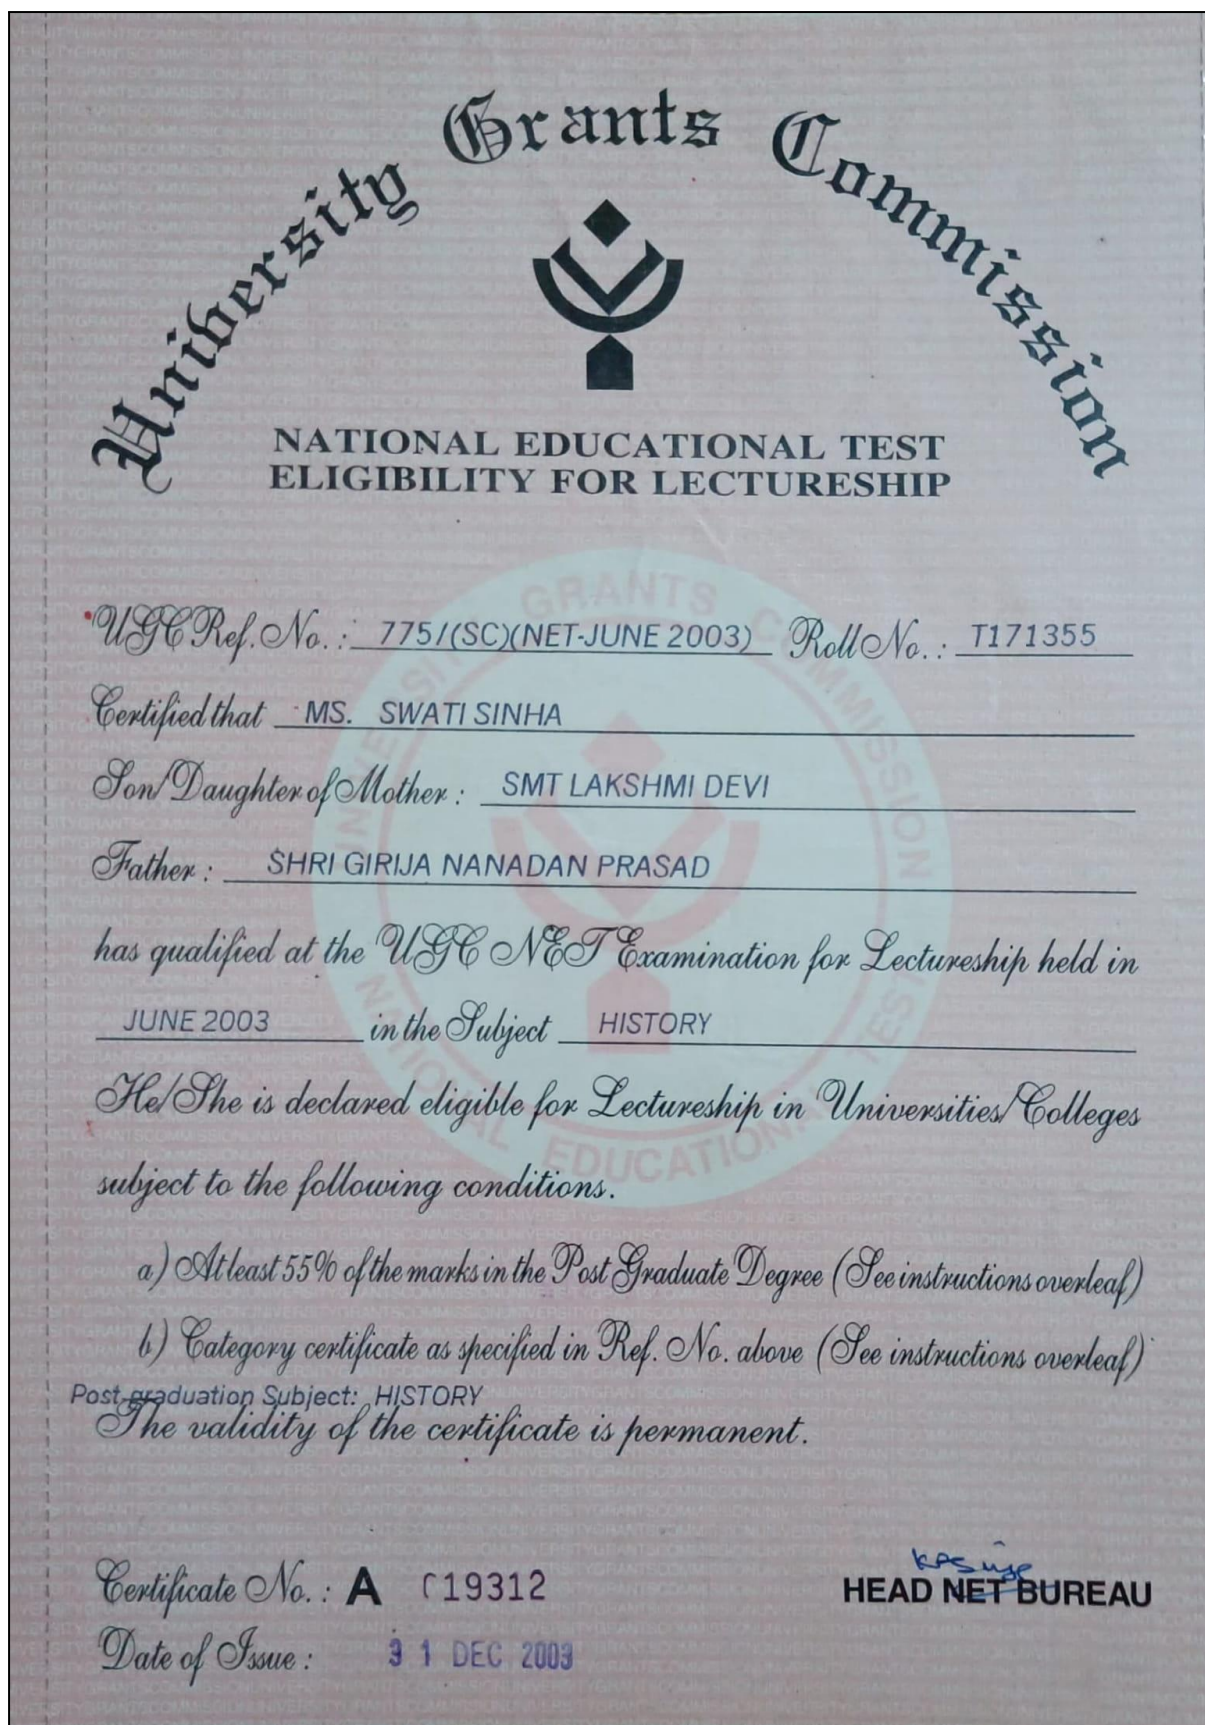 University Grants Commission
NATIONAL EDUCATIONAL TEST
ELIGIBILITY FOR LECTURESHIP
UNIVERSITY GRANTS COMMISSION
NATIONAL EDUCATIONAL TEST
UGC Ref. No. : 775/(SC)(NET-JUNE 2003) Roll No. : T171355
Certified that MS. SWATI SINHA
Son/Daughter of Mother : SMT LAKSHMI DEVI
Father : SHRI GIRIJA NANADAN PRASAD
has qualified at the UGC NET Examination for Lectureship held in
JUNE 2003 in the Subject HISTORY
He/She is declared eligible for Lectureship in Universities/Colleges
subject to the following conditions.
a) At least 55% of the marks in the Post Graduate Degree (See instructions overleaf)
b) Category certificate as specified in Ref. No. above (See instructions overleaf)
Post-graduation Subject: HISTORY
The validity of the certificate is permanent.
Certificate No. : A 19312
HEAD NET BUREAU
Date of Issue : 31 DEC 2003